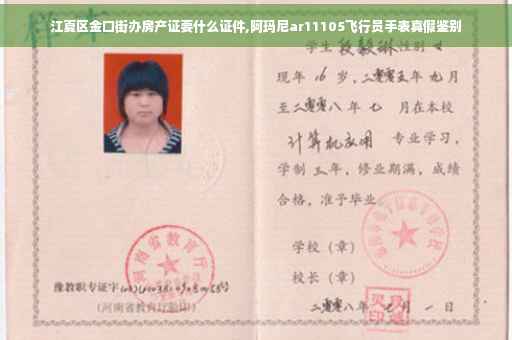 江夏区金口街办房产证要什么证件,阿玛尼ar11105飞行员手表真假鉴别
样本
学生段毅琳性别女
现年16岁,二零零五年九月
至二零零八年七月在本校
计算机应用专业学习,
学制三年,修业期满,成绩
合格,准予毕业
学校(章)
校长(章)
二零零八年 月一日
河南省教育厅
豫教职专证字
(河南省教育厅验印)